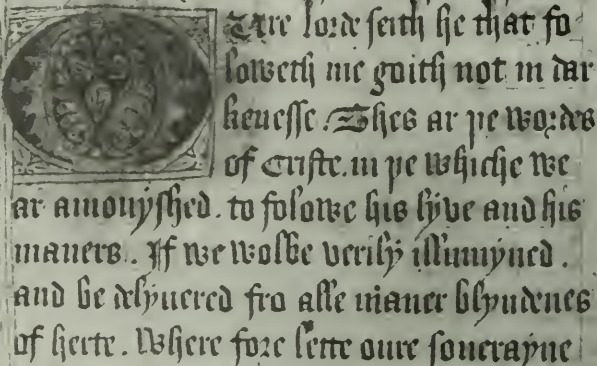 Oure lorde seith he that fo
loweth me goith not in dar
kenesse. Thes ar þe wordes
of Criste. in þe whiche we
ar amonyshed. to folowe his lyve and his
maners.. If we wolbe verily illumyned.
and be delyuered fro alle maner blyndenes
of herte. Where fore lette oure souerayne